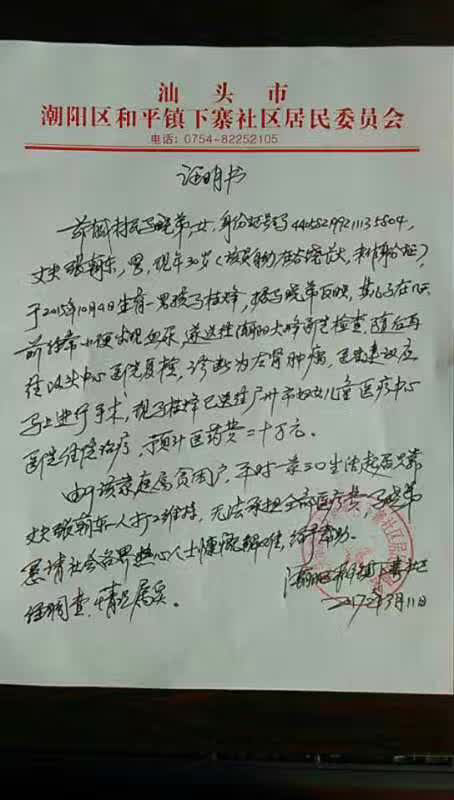 汕头市
潮阳区和平镇下寨社区居民委员会
电话：0754-82252105
证明书
兹有村民马晓弟，女，身份证号码
丈夫张朝东，男，现年30岁（该员自幼在外长大，未办身份证），
于2015年10月4日生有一男孩马桂烽，据马晓弟反映，其儿子在几天
前经常小便出现血尿，遂送往潮阳大峰医院检查，随后再
往汕头中心医院复检，诊断为左肾肿瘤，医生建议应
马上进行手术，现马桂烽已送往广州市妇女儿童医疗中心
医院住院治疗，预计医药费二十万元。
由于该家庭属贫困户，平时一家三口生活起居只靠
丈夫张朝东一人打工维持，无法承担全部医疗费，马晓弟
恳请社会各界热心人士慷慨解囊，给予帮助。
经调查，情况属实。
潮阳区和平镇下寨社区
2017年3月11日